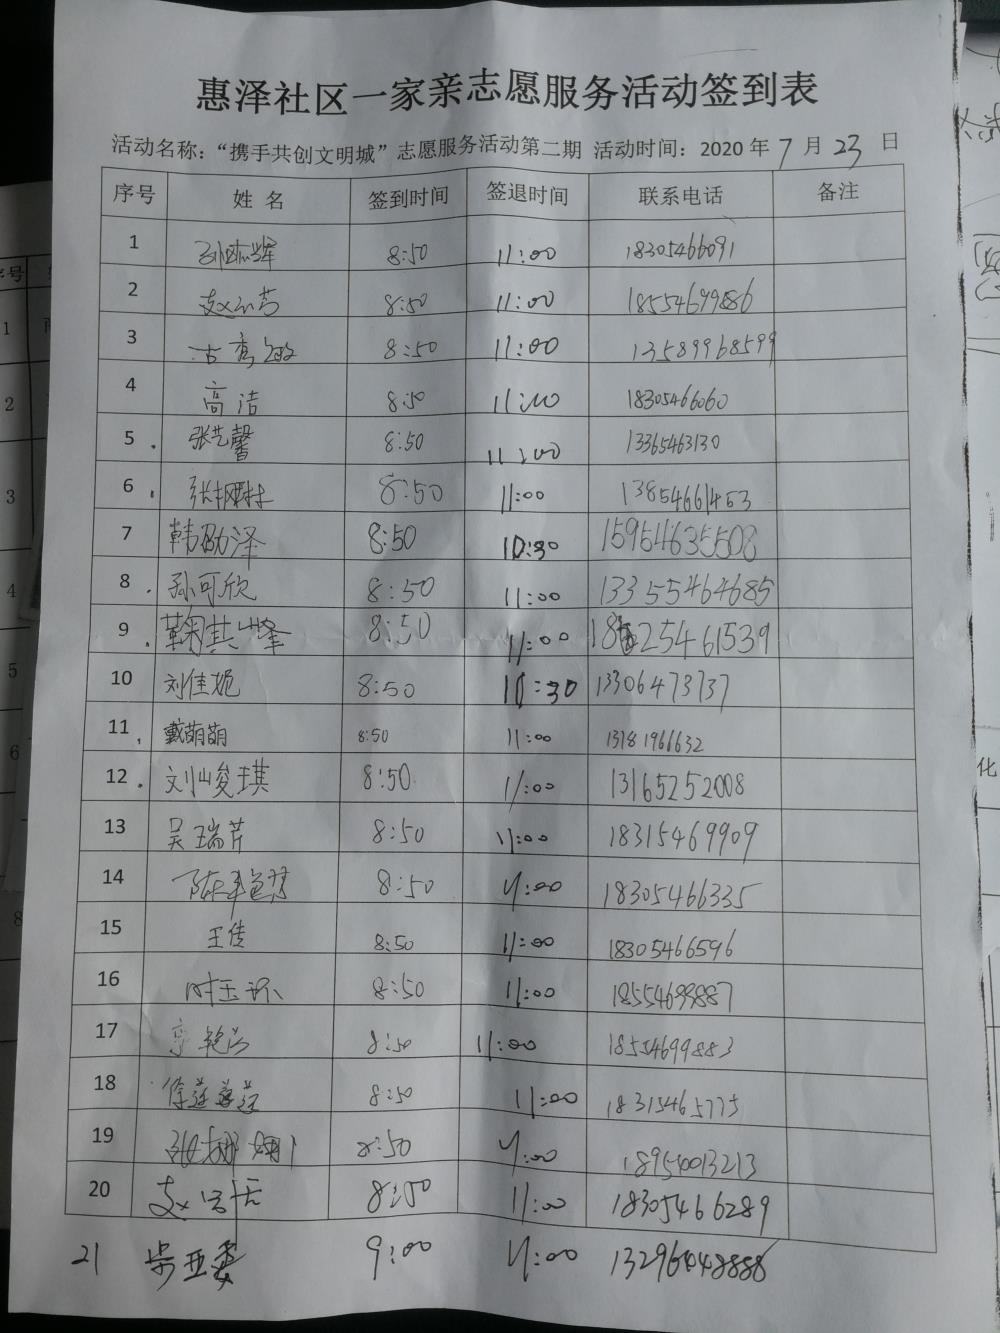 惠泽社区一家亲志愿服务活动签到表
活动名称：“携手共创文明城”志愿服务活动第二期 活动时间：2020 年 7 月 23 日
序号 姓 名 签到时间 签退时间 联系电话 备注
1 8:50 11:00 18305466091
2 8:50 11:00 18554699886
3 8:50 11:00 13589968599
4 高洁 8:50 11:00 18305466060
5 张艺馨 8:50 11:00 13365463130
6 8:50 11:00 13854661453
7 韩劭泽 8:50 10:30 15954635508
8 孙可欣 8:50 11:00 133555464685
9 鞠其峰 8:50 11:00 25461539
10 刘佳妮 8:50 13306473737
11 戴萌萌 8:50 11:00 13181966632
12 刘峻琪 8:50 11:00 13165252008
13 吴瑞芹 8:50 11:00 18315469909
14 8:50 11:00 18305466335
15 王佳 8:50 11:00 18305466596
16 时玉环 8:50 11:00 18554699887
17 8:50 11:00 18554699883
18 8:50 11:00 18315465775
19 8:50 11:00 18954013213
20 8:50 11:00 18305466289
21 9:00 11:00 13296448888
序号
1
2
3
4
5
6
8
化